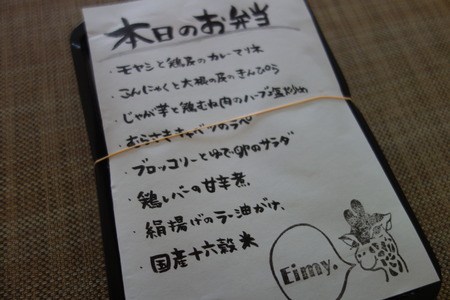 本日のお弁当
・モヤシと鶏皮のカレー炒
・こんにゃくと大根の皮のきんぴら
・じゃが芋と鶏むね肉のハーブ塩炒め
・むらさきキャベツのラペ
・ブロッコリーとゆで卵のサラダ
・鶏レバーの甘辛煮
・絹揚げのラー油がけ
・国産十六穀米
Eimy.